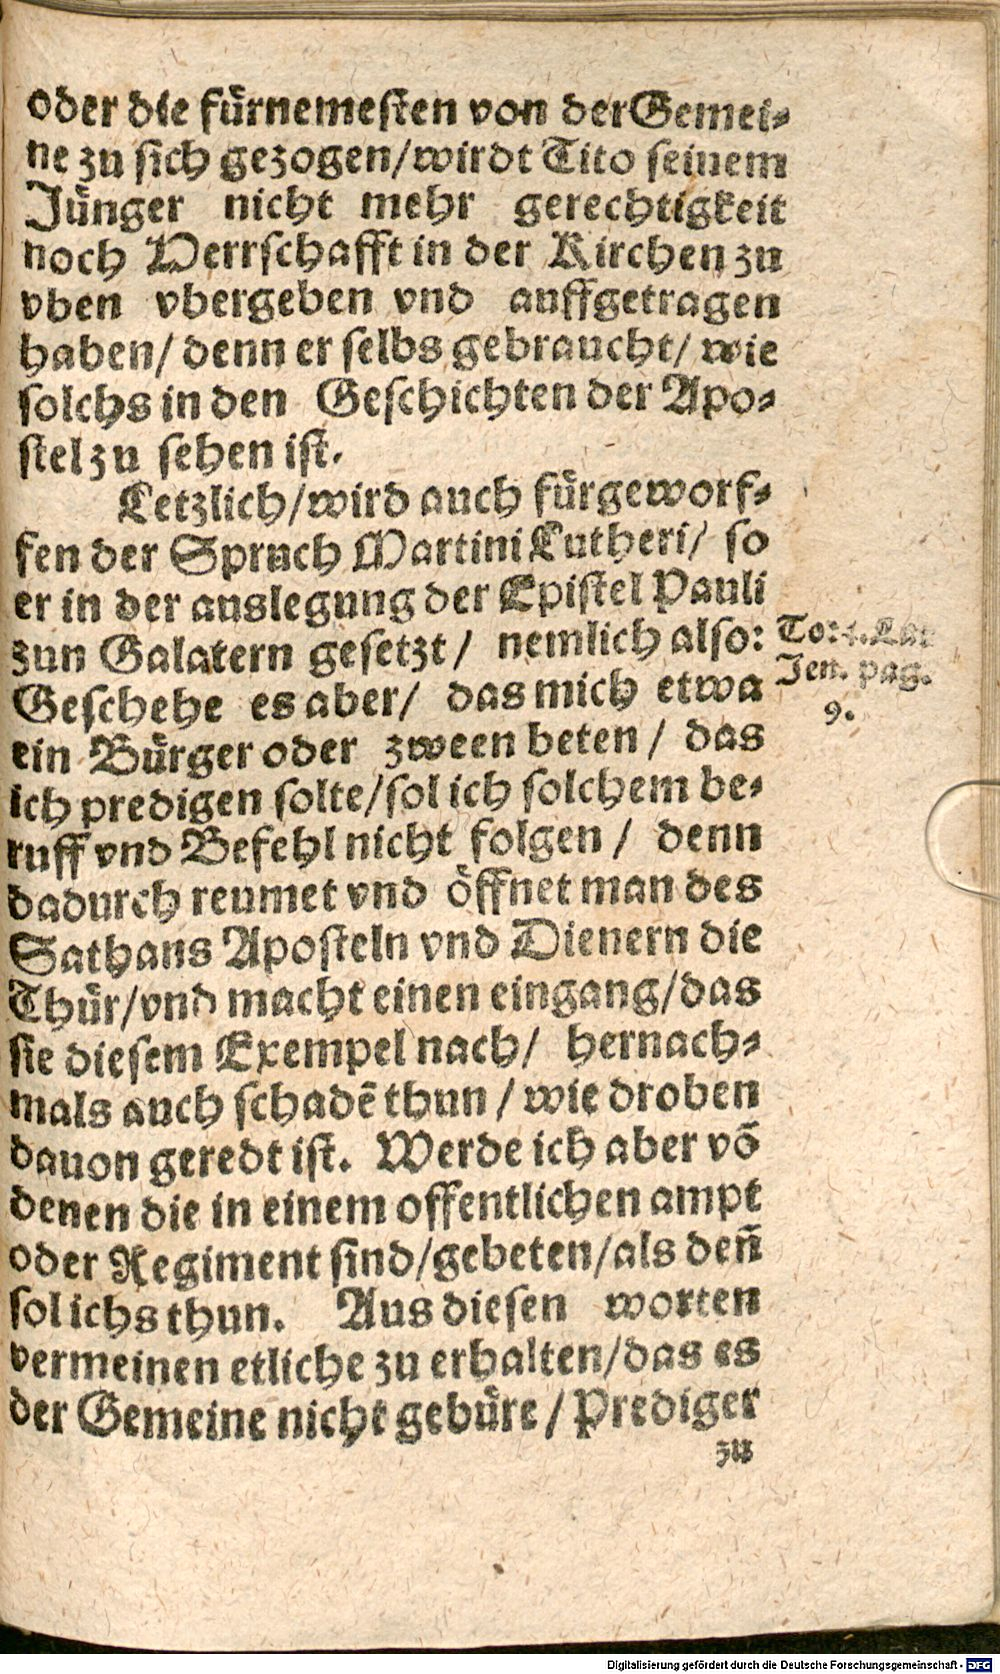 oder die fürnemesten von der Gemei-
ne zu sich gezogen/wirdt Tito seinem
Jünger nicht mehr gerechtigkeit
noch Herrschafft in der Kirchen zu
vben vbergeben vnd auffgetragen
haben/ denn er selbs gebraucht/ wie
solchs in den Geschichten der Apo-
stel zu sehen ist.
Letzlich/wird auch fürgeworf-
fen der Spruch Martini Lutheri/ so
er in der auslegung der Epistel Pauli
zun Galatern gesetzt/ nemlich also:
To: 4. Lat
Jen. pag.
9.
Geschehe es aber/ das mich etwa
ein Bürger oder zween beten/ das
ich predigen solte/sol ich solchem be-
ruff vnd Befehl nicht folgen/ denn
dadurch reumet vnd öffnet man des
Sathans Aposteln vnd Dienern die
Thür/vnd macht einen eingang/das
sie diesem Exempel nach/ hernach-
mals auch schadē thun/ wie droben
dauon geredt ist. Werde ich aber vō
denen die in einem offentlichen ampt
oder Regiment sind/gebeten/als deñ
sol ichs thun. Aus diesen worten
vermeinen etliche zu erhalten/das es
der Gemeine nicht gebüre/ Prediger
zu
Digitalisierung gefördert durch die Deutsche Forschungsgemeinschaft - DFG